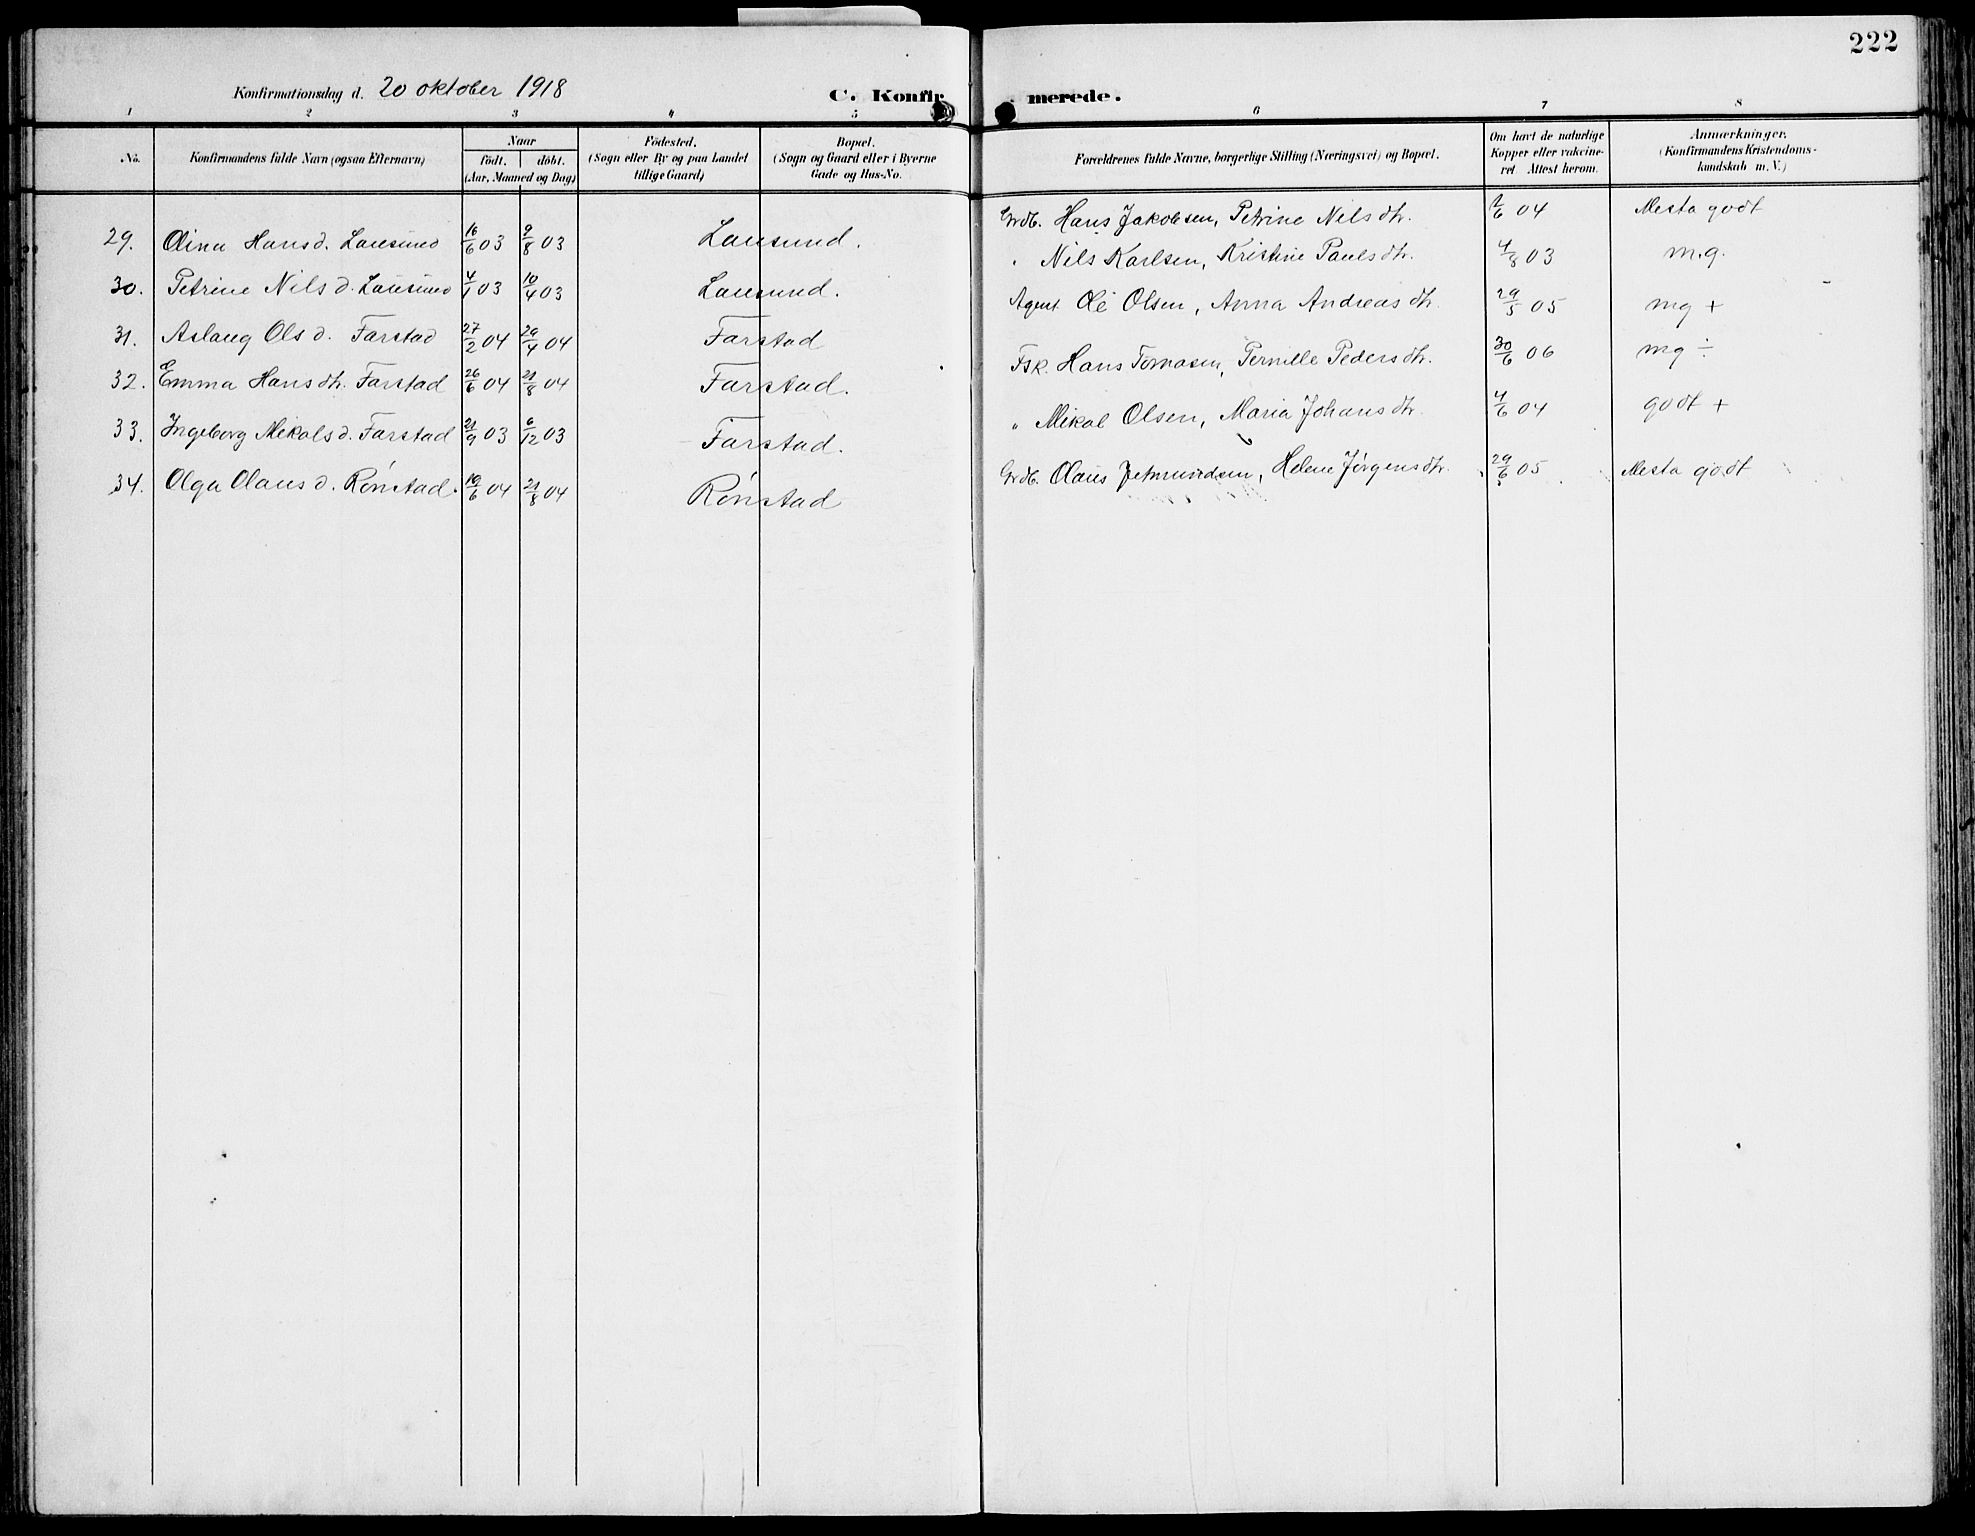 222
Konfirmationsdag d. 20 oktober 1918 C. Konfir merede.
1 2 3 4 5 6 7 8
No. Konfirmandens fulde Navn (ogsaa Efternavn) Naar født. døbt. (Aar, Maaned og Dag) Födested. (Sogn eller By og paa Landet tillige Gaard) Bopæl. (Sogn og Gaard eller i Byerne Gade og Hus-No. Forældrenes fulde Navne, borgerlige Stilling (Næringsvei) og Bopæl. Om havt de naturlige Kopper eller vakcineret. Attest herom. Anmærkninger. (Konfirmandens Kristendomskundskab m. V.)
29. Olina Hansd. Lausund 16/6 03 9/8 03 Lausund. Grdb. Hans Jakobsen, Petrine Nilsdtr. 1/6 04 Mesta godt
30. Petrine Nilsd. Lausund 4/1 03 10/4 03 Lausund. " Nils Karlsen, Kristine Paulsdtr. 4/8 03 m.g.
31. Aslaug Olsd. Farstad 27/2 04 29/4 04 Farstad Agent Ole Olsen, Anna Andreasdtr. 29/5 05 mg +
32. Emma Hansdtr. Farstad 26/6 04 21/8 04 Farstad. Fsk. Hans Tomasen, Pernille Pedersdtr. 30/6 06 mg ÷
33. Ingeborg Mekalsd. Farstad 21/9 03 6/12 03 Farstad. " Mikal Olsen, Maria Johansdtr. 4/6 04 godt +
34. Olga Olausd. Rønstad. 19/6 04 21/8 04 Rønstad Grdb. Olaus Jetmundsen, Helene Jørgensdtr. 29/6 05 Mesta godt